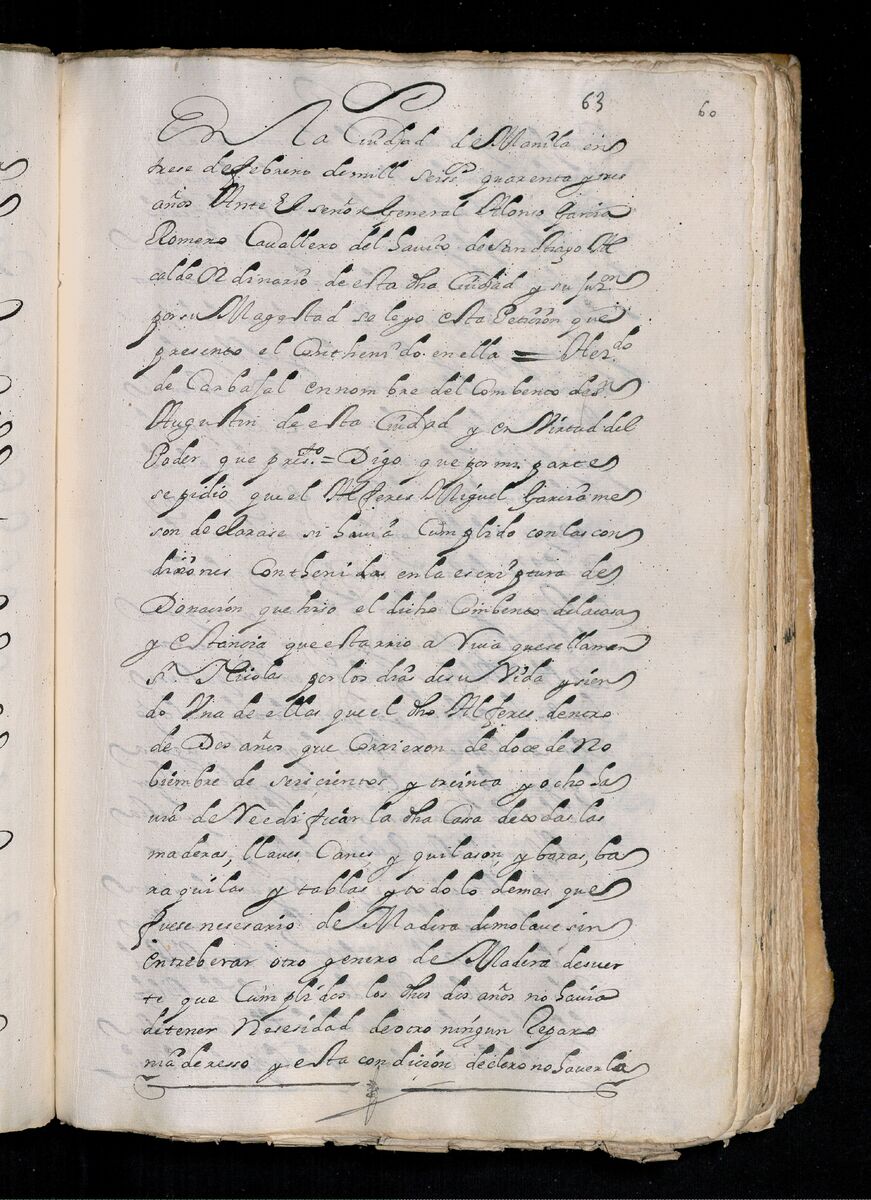 63
60
En la Ciudad de Manila en
trese de febrero de mill seisos quarenta y tres
años Ante El señor General Alonso Garcia
Romero Cavallero del havito de Santiago Al
calde Ordinario de esta dha Ciudad y su juron
por su Magestad se leyo esta Peticion que
presento el Conthenido en ella = Herdo
de Carbajal en nombre del Combento de sn
Augustin de esta Ciudad y en Virtud del
Poder que presto = Digo que por mi parte
se pidio que el Alferes Miguel Garcia me
son declarase si havia Cumplido con las con
diziones Conthenidas en la escriptura de
Donacion que hiso el dicho Combento de la casa
y estancia que esta rrio a Viva que se llaman
S. Nicolas por los dias de su Vida y sien
do Una de ellas que el dho Alferes dentro
de Dos años que Corrieron de doce de No
biembre de seiscientos y treinta y ocho ha
via de Reedificar la dha Casa de todas las
maderas, llaves Canes, y quilason, y baras, ba
raquilas y tablas y todo lo demas que
fuese nesesario de Madera de molave sin
entreberar otro genero de Madera de suer
te que Cumplidos los dhos dos años no havia
de tener Nesesidad de otro ningun Reparo
ma de resso y esta condicion declero no haverla